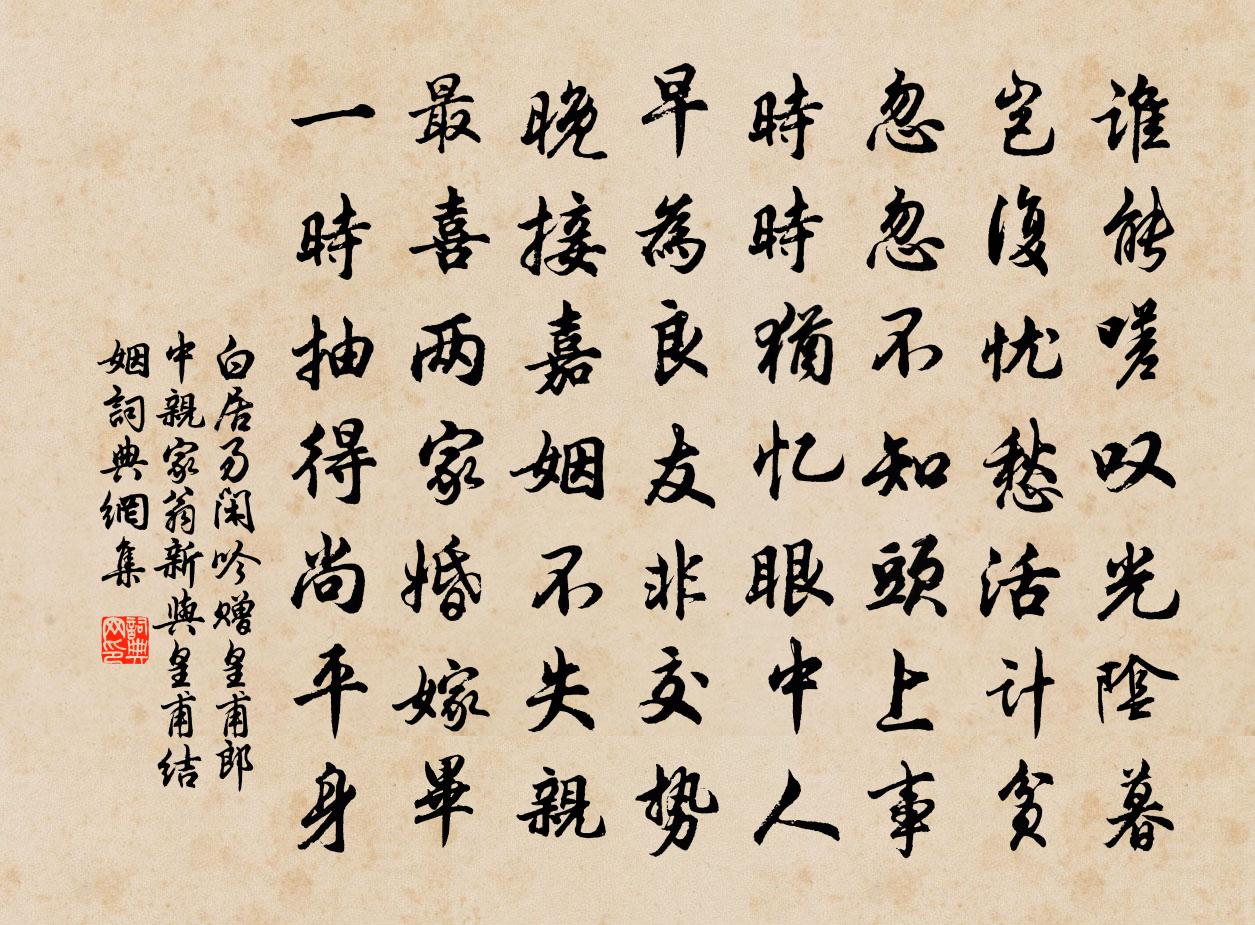 谁能嗟叹光陰暮
岂復忧愁活计貧
忽忽不知頭上事
時時猶忆眼中人
早為良友非交势
晚接嘉姻不失親
最喜两家婚嫁畢
一時抽得尚平身
白居易閑吟赠皇甫郎
中親家翁新與皇甫結
姻詞典網集
詞典网印